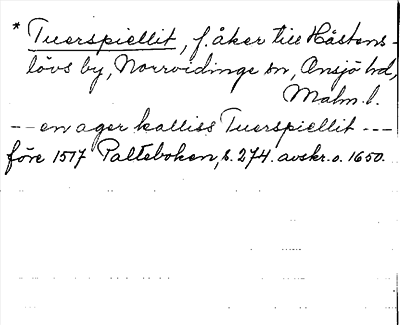 * Tuerspiellit, f. åker till Håstens-
lövs by, Norrvidinge sn, Onsjö hd,
Malm. l.
-- en ager kalliss Tuerspiellit ---
före 1517 Palteboken, s. 274. avskr. o. 1650.